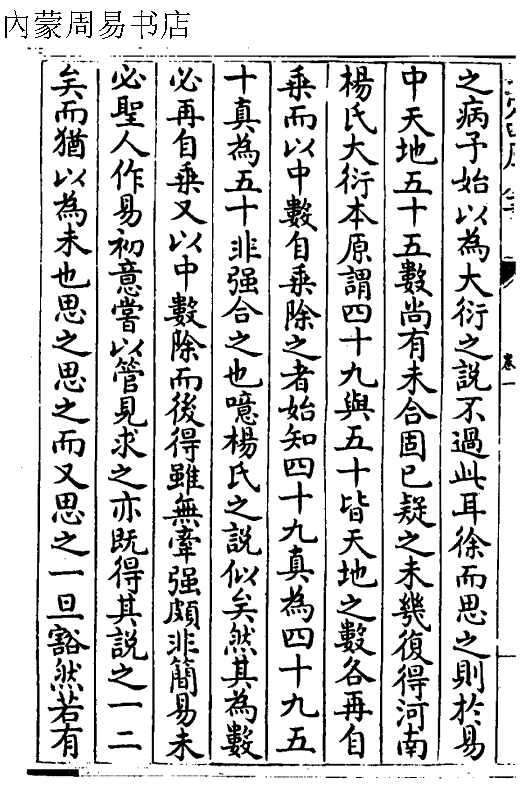 內蒙周易书店
之病予始以為大衍之說不過此耳徐而思之則於易
中天地五十五數尚有未合固已疑之未幾復得河南
楊氏大衍本原謂四十九與五十皆天地之數各再自
乘而以中數自乘除之者始知四十九真為四十九五
十真為五十非强合之也噫楊氏之說似矣然其為數
必再自乘又以中數除而後得雖無牽强頗非簡易未
必聖人作易初意嘗以管見求之亦既得其說之一二
矣而猶以為未也思之思之而又思之一旦豁然若有
卷一